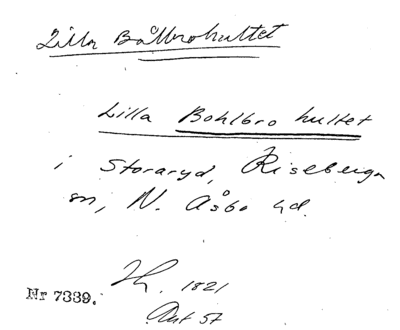 Lilla Bålbrohultet
Lilla Bohlbro hultet
i Storaryd, Riseberga
sn, N. Åsbo hd.
1821
Nr 7339.